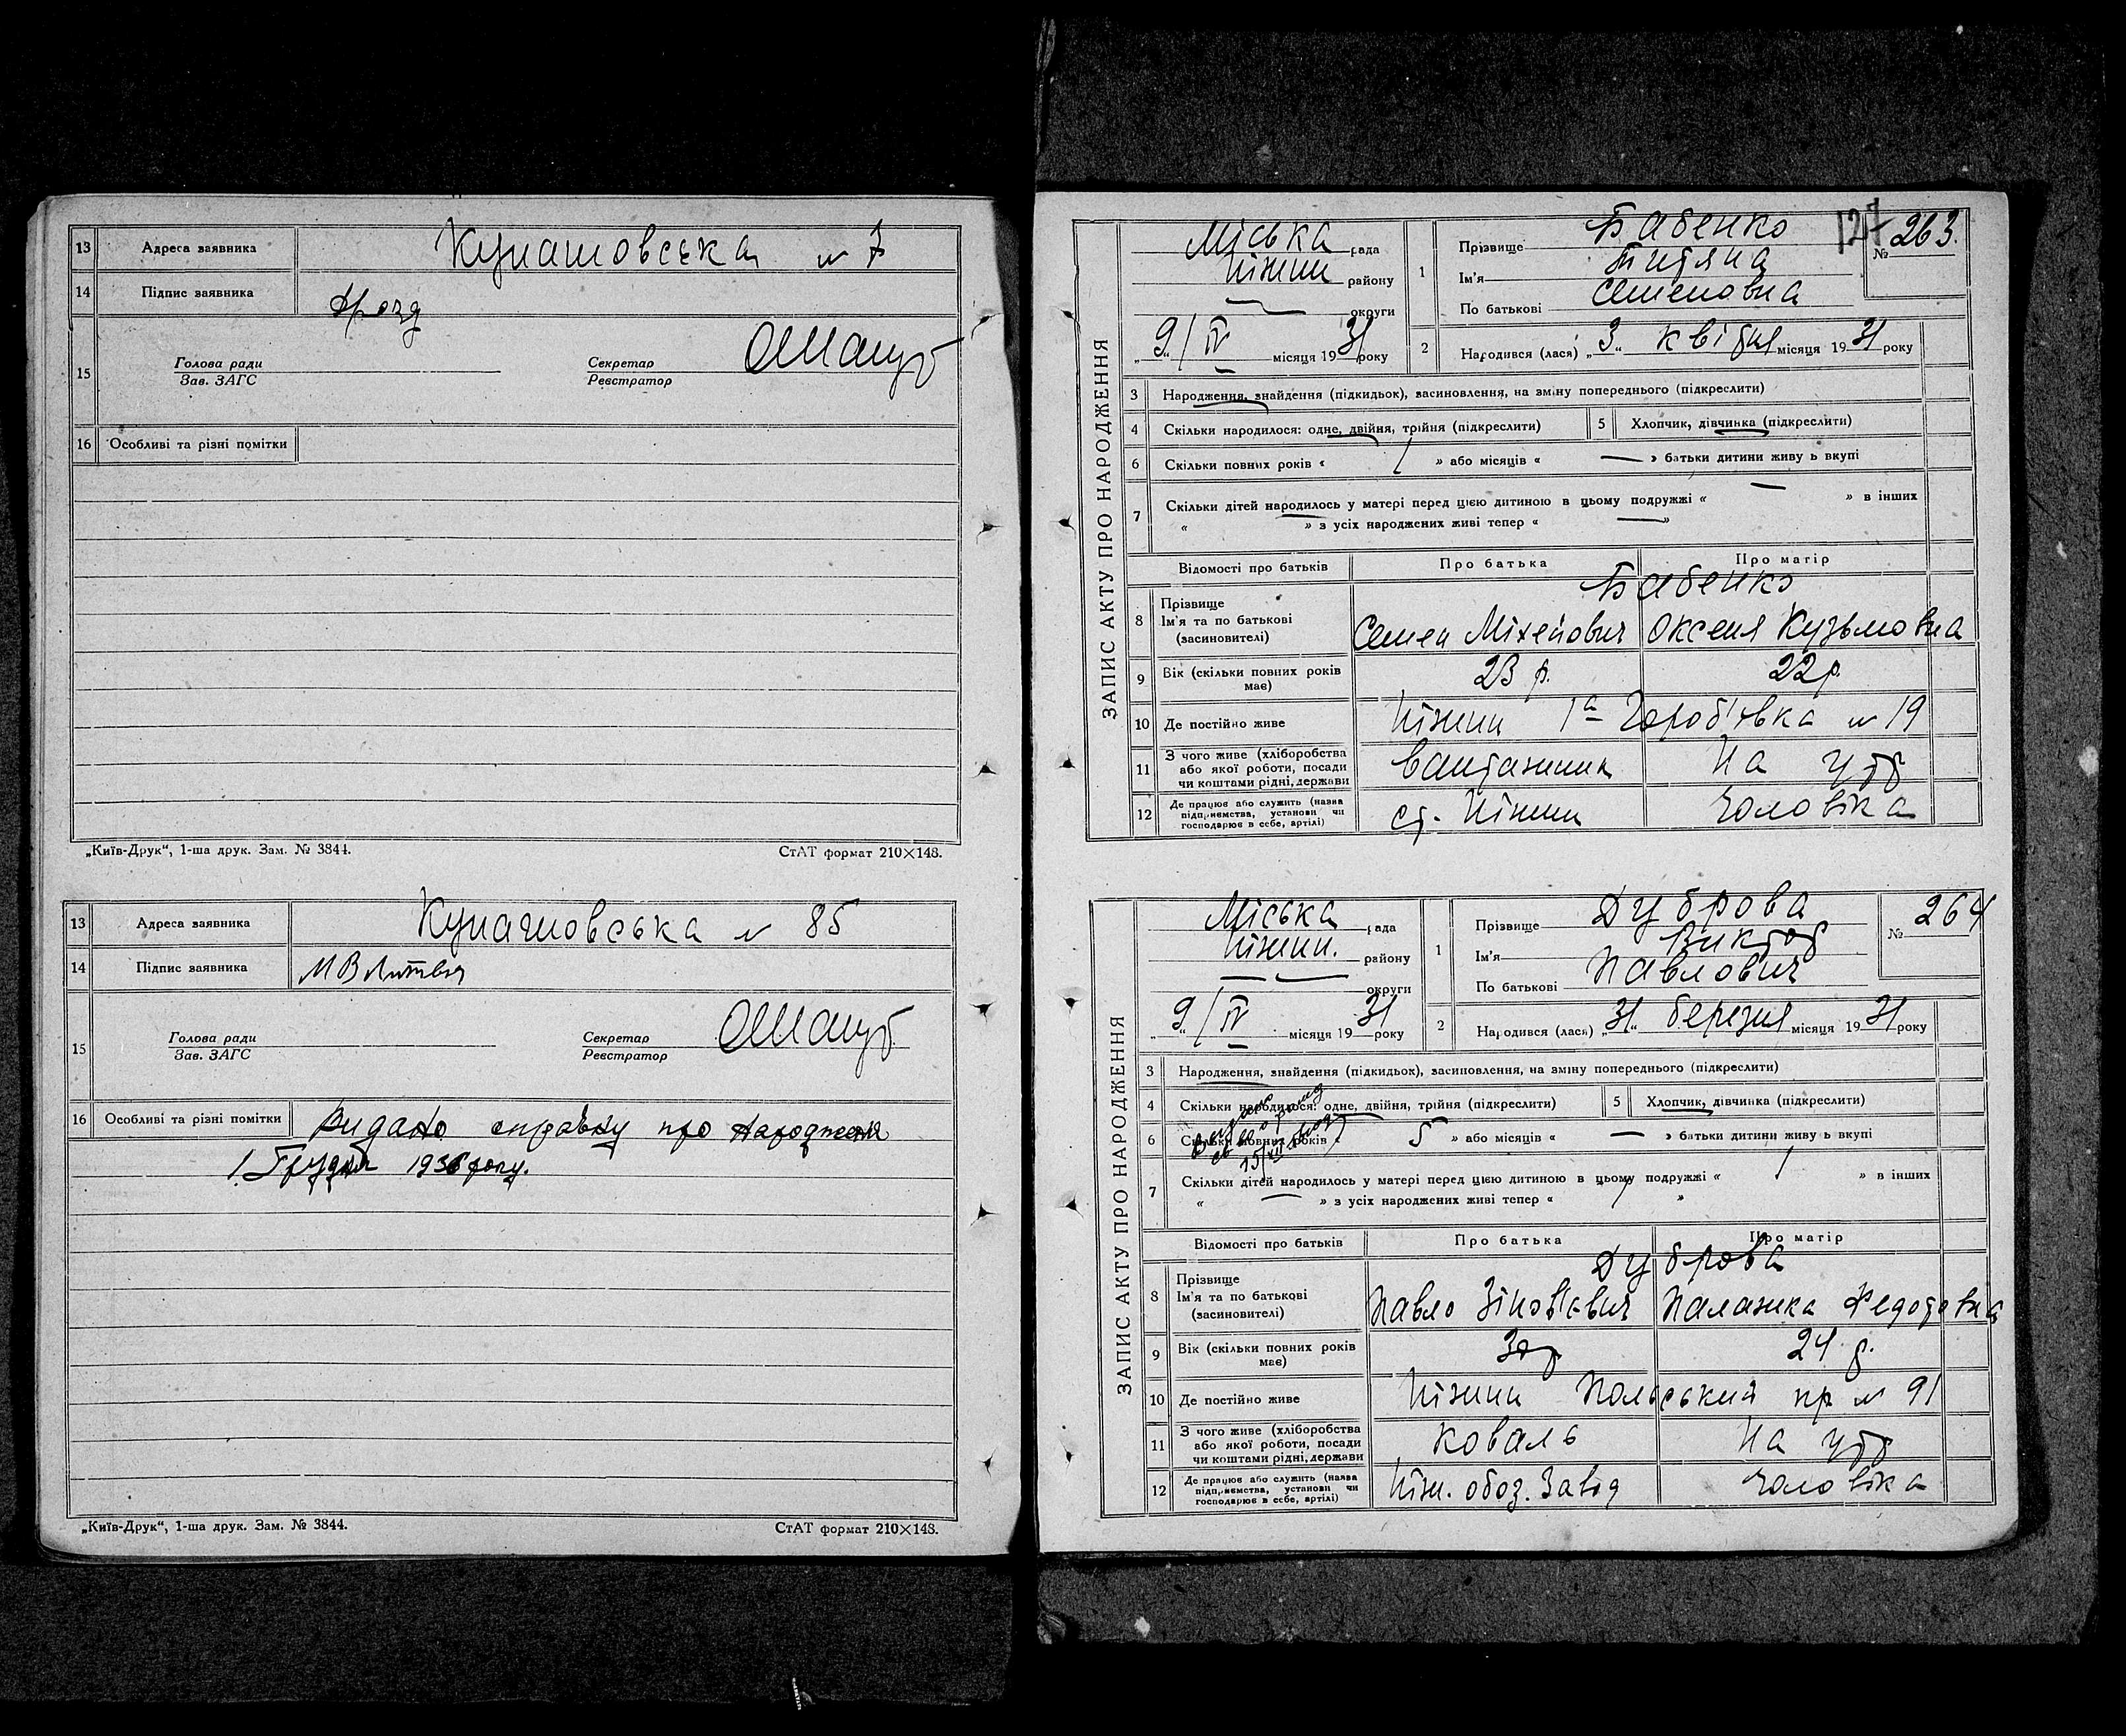 13 Адреса заявника Кунашовська № 7
14 Підпис заявника
15 Голова ради
Зав. ЗАГС
Секретар
Реєстратор
16 Особливі та різні помітки
„Київ-Друк“, 1-ша друк. Зам. № 3844. СтАТ формат 210×148.
13 Адреса заявника Кунашовська № 85
14 Підпис заявника
15 Голова ради
Зав. ЗАГС
Секретар
Реєстратор
16 Особливі та різні помітки Видано справку про народження
1 Грудня 1936 року.
„Київ-Друк“, 1-ша друк. Зам. № 3844. СтАТ формат 210×148.
ЗАПИС АКТУ ПРО НАРОДЖЕННЯ
Міська рада
Ніжин району
округи
„9“/IV місяця 1931 року
127
№ 263.
1 Прізвище Бабенко
Ім'я Титяна
По батькові Семеновна
2 Народився (лася) „3“ квітня місяця 1931 року
3 Народження, знайдення (підкидьок), засиновлення, на зміну попереднього (підкреслити)
4 Скільки народилося: одне, двійня, трійня (підкреслити) 5 Хлопчик, дівчинка (підкреслити)
6 Скільки повних років « / » або місяців « — » батьки дитини живу ь вкупі
7 Скільки дітей народилось у матері перед цією дитиною в цьому подружжі « — » в інших
« — » з усіх народжених живі тепер « — »
Відомості про батьків Про батька Про матір
8 Прізвище Бабенко
Ім'я та по батькові Семен Міхейович Оксеня Кузьмовна
(засиновителі)
9 Вік (скільки повних років має) 23 р. 22 р.
10 Де постійно живе Ніжин 1а Гороб'ївка № 19
11 З чого живе (хліборобства або якої роботи, посади чи коштами рідні, держави вантажник На утр
12 Де працює або служить (назва підприємства, установи чи господарює в себе, артілі) ст. Ніжин чоловіка
ЗАПИС АКТУ ПРО НАРОДЖЕННЯ
Міська рада
Ніжин. району
округи
„9“/IV місяця 1931 року
№ 264
1 Прізвище Дуброва
Ім'я Виктор
По батькові Павлович
2 Народився (лася) „31“ березня місяця 1931 року
3 Народження, знайдення (підкидьок), засиновлення, на зміну попереднього (підкреслити)
4 Скільки народилося: одне, двійня, трійня (підкреслити) 5 Хлопчик, дівчинка (підкреслити)
6 Скільки повних років « 5 » або місяців « — » батьки дитини живу ь вкупі
7 Скільки дітей народилось у матері перед цією дитиною в цьому подружжі « / » в інших
« — » з усіх народжених живі тепер « / »
Відомості про батьків Про батька Про матір
8 Прізвище Дуброва
Ім'я та по батькові Павло Зінов'євич Палажка Федотовна
(засиновителі)
9 Вік (скільки повних років має) 24 р.
10 Де постійно живе Ніжин Польський пр. № 91
11 З чого живе (хліборобства або якої роботи, посади чи коштами рідні, держави коваль На утр
12 Де працює або служить (назва підприємства, установи чи господарює в себе, артілі) Ніж. обоз. Завод чоловіка